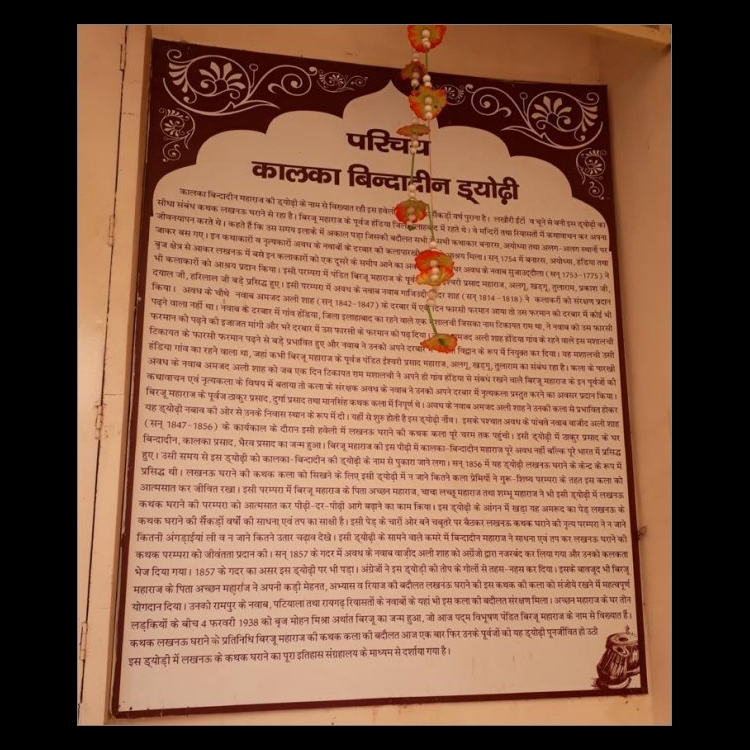 परिचय
कालका बिन्दादीन ड्योढ़ी
कालका बिन्दादीन महाराज की ड्योढ़ी के नाम से विख्यात रही इस हवेली सैंकड़ों वर्ष पुराना है। लखौरी ईंटों व चूने से बनी इस ड्योढ़ी का
सीधा संबंध कथक लखनऊ घराने से रहा है। बिरजू महाराज के पूर्वज हंडिया जिला इलाहाबाद में रहते थे। वे मन्दिरों तथा रियासतों में कथावाचन कर अपना
जीवनयापन करते थे। कहते हैं कि उस समय इलाके में अकाल पड़ा जिसकी बदौलत सभी कथाकार बनारस, अयोध्या तथा अलग-अलग स्थानों पर
जाकर बस गए। इन कथाकारों व नृत्यकारों अवध के नवाबों के दरबार की कलापारखी आश्रय मिला। सन् 1754 में बनारस, अयोध्या, हंडिया तथा
बृज क्षेत्र से आकर लखनऊ में बसे इन कलाकारों को एक दूसरे के समीप आने का पर अवध के नवाब सुजाउदौला (सन् 1753-1775) ने
भी कलाकारों को आश्रय प्रदान किया। इसी परम्परा में पंडित बिरजू महाराज के ईश्वरी प्रसाद महाराज, अलगू, खड़गू, तुलाराम, प्रकाश जी,
दयाल जी, हरिलाल जी बड़े प्रसिद्ध हुए। इसी परम्परा में अवध के नवाब नवाब गाजिउद्दी शाह (सन् 1814-1818) ने कलाकरों को संरक्षण प्रदान
किया। अवध के चौथे नवाब अमजद अली शाह (सन् 1842-1847) के दरबार में एक दिन फारसी फरमान आया तो उस फरमान को दरबार में कोई भी
पढ़ने वाला नहीं था। नवाब के दरबार में गांव हंडिया, जिला इलाहाबाद का रहने वाले एक मशालची जिसका नाम टिकायत राम था, ने नवाब को उस फारसी
फरमान को पढ़ने की इजाजत मांगी और भरे दरबार में उस फारसी के फरमान को पढ़ दिया। अमजद अली शाह हंडिया गांव के रहने वाले इस मशालची
टिकायत के फारसी फरमान पढ़ने से बड़े प्रभावित हुए और नवाब ने उनको अपने दरबार में विद्वान के रूप में नियुक्त कर दिया। यह मशालची उसी
हंडिया गांव का रहने वाला था, जहां कभी बिरजू महाराज के पूर्वज पंडित ईश्वरी प्रसाद महाराज, अलगू, खड़गू, तुलाराम का संबंध रहा है। कला के पारखी
अवध के नवाब अमजद अली शाह को जब एक दिन टिकायत राम मशालची ने अपने ही गांव हंडिया से संबंध रखने वाले बिरजू महाराज के इन पूर्वजों की
कथावाचन एवं नृत्यकला के विषय में बताया तो कला के संरक्षक अवध के नवाब ने उनको अपने दरबार में नृत्यकला प्रस्तुत करने का अवसर प्रदान किया।
बिरजू महाराज के पूर्वज ठाकुर प्रसाद, दुर्गा प्रसाद तथा मानसिंह कथक कला में निपुण थे। अवध के नवाब अमजद अली शाह ने उनकी कला से प्रभावित होकर
यह ड्योढ़ी नबाव की ओर से उनके निवास स्थान के रूप में दी। यहीं से शुरु होती है इस ड्योढ़ी नींव। इसके पश्चात अवध के पांचवें नवाब वाजीद अली शाह
(सन् 1847-1856) के कार्यकाल के दौरान इसी हवेली में लखनऊ घराने की कथक कला पूरे चरम तक पहुंची। इसी ड्योढ़ी में ठाकुर प्रसाद के घर
बिन्दादीन, कालका प्रसाद, भैरव प्रसाद का जन्म हुआ। बिरजू महाराज की इस पीढ़ी में कालका-बिन्दादीन महाराज पूरे अवध नहीं बल्कि पूरे भारत में प्रसिद्ध
हुए। उसी समय से इस ड्योढ़ी को कालका-बिन्दादीन की ड्योढ़ी के नाम से पुकारा जाने लगा। सन् 1856 में यह ड्योढ़ी लखनऊ घराने के केन्द्र के रूप में
प्रसिद्ध थी। लखनऊ घराने की कथक कला को सिखने के लिए इसी ड्योढ़ी में न जाने कितने कला प्रेमियों ने गुरू-शिष्य परम्परा के तहत इस कला को
आत्मसात कर जीवित रखा। इसी परम्परा में बिरजू महाराज के पिता अच्छन महाराज, चाचा लच्छू महाराज तथा शम्भू महाराज ने भी इसी ड्योढ़ी में लखनऊ
कथक घराने की परम्परा को आत्मसात कर पीढ़ी-दर-पीढ़ी आगे बढ़ाने का काम किया। इस ड्योढ़ी के आंगन में खड़ा यह अमरूद का पेड़ लखनऊ के
कथक घराने की सैंकड़ों वर्षों की साधना एवं तप का साक्षी है। इसी पेड़ के चारों ओर बने चबूतरे पर बैठकर लखनऊ कथक घराने की नृत्य परम्परा ने न जाने
कितनी अंगड़ाईयां ली व न जाने कितने उतार चढ़ाव देखे। इसी ड्योढ़ी के सामने वाले कमरे में बिन्दादीन महाराज ने साधना एवं तप कर लखनऊ घराने की
कथक परम्परा को जीवंतता प्रदान की। सन् 1857 के गदर में अवध के नवाब वाज़ीद अली शाह को अंग्रेजों द्वारा नजरबंद कर लिया गया और उनको कलकता
भेज दिया गया। 1857 के गदर का असर इस ड्योढ़ी पर भी पड़ा। अंग्रेजों ने इस ड्योढ़ी को तोप के गोलों से तहस-नहस कर दिया। इसके बावजूद भी बिरजू
महाराज के पिता अच्छन महाराज ने अपनी कड़ी मेहनत, अभ्यास व रियाज की बदौलत लखनऊ घराने की इस कथक की कला को संजोये रखने में महत्वपूर्ण
योगदान दिया। उनको रामपुर के नवाब, पटियाला तथा रायगढ़ रियासतों के नवाबों के यहां भी इस कला की बदौलत संरक्षण मिला। अच्छन महाराज के घर तीन
लड़कियों के बीच 4 फरवरी 1938 को बृज मोहन मिश्रा अर्थात बिरजू का जन्म हुआ, जो आज पद्म विभूषण पंडित बिरजू महाराज के नाम से विख्यात हैं।
कथक लखनऊ घराने के प्रतिनिधि बिरजू महाराज की कथक कला की बदौलत आज एक बार फिर उनके पूर्वजों की यह ड्योढ़ी पुनर्जीवित हो उठी
इस ड्योड़ी में लखनऊ के कथक घराने का पूरा इतिहास संग्रहालय के माध्यम से दर्शाया गया है।